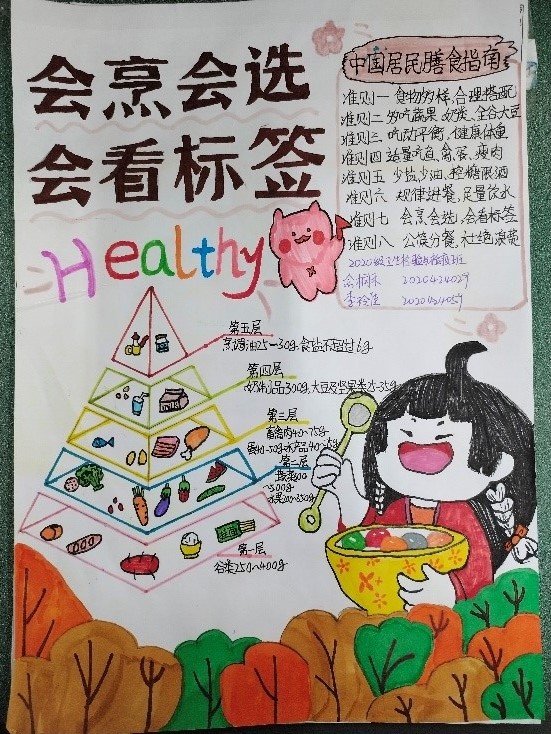 会烹会选
会看标签
Healthy
中国居民膳食指南
准则一 食物多样,合理搭配
准则二 多吃蔬果、奶类、全谷、大豆
准则三 吃动平衡,健康体重
准则四 适量吃鱼、禽、蛋、瘦肉
准则五 少盐少油,控糖限酒
准则六 规律进餐,足量饮水
准则七 会烹会选,会看标签
准则八 公筷分餐,杜绝浪费
2020级卫生检验与检疫班
2020424029
2020424057
第五层
烹调油25~30g,食盐不超过6g
第四层
奶制品300g,大豆及坚果类25-35g
第三层
畜禽肉40~75g
蛋40-50g 水产品40~75g
第二层
蔬菜300
~500g
水果200~350g
第一层
谷类250~400g